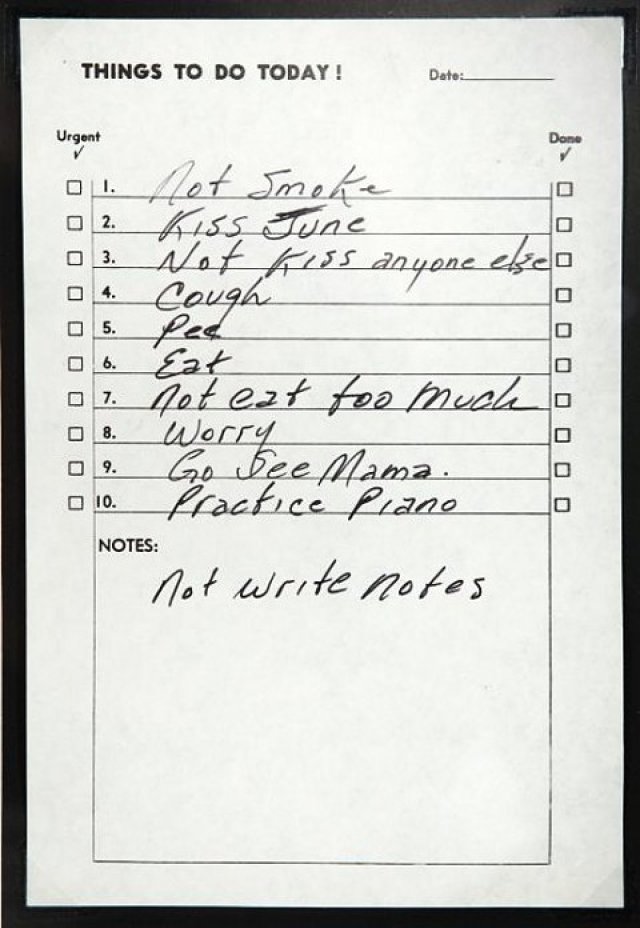 THINGS TO DO TODAY!
Date:
Urgent
Done
1. Not Smoke
2. Kiss June
3. Not Kiss anyone else
4. Cough
5. Pee
6. Eat
7. Not eat too much
8. Worry
9. Go See Mama.
10. Practice Piano
NOTES:
Not write notes